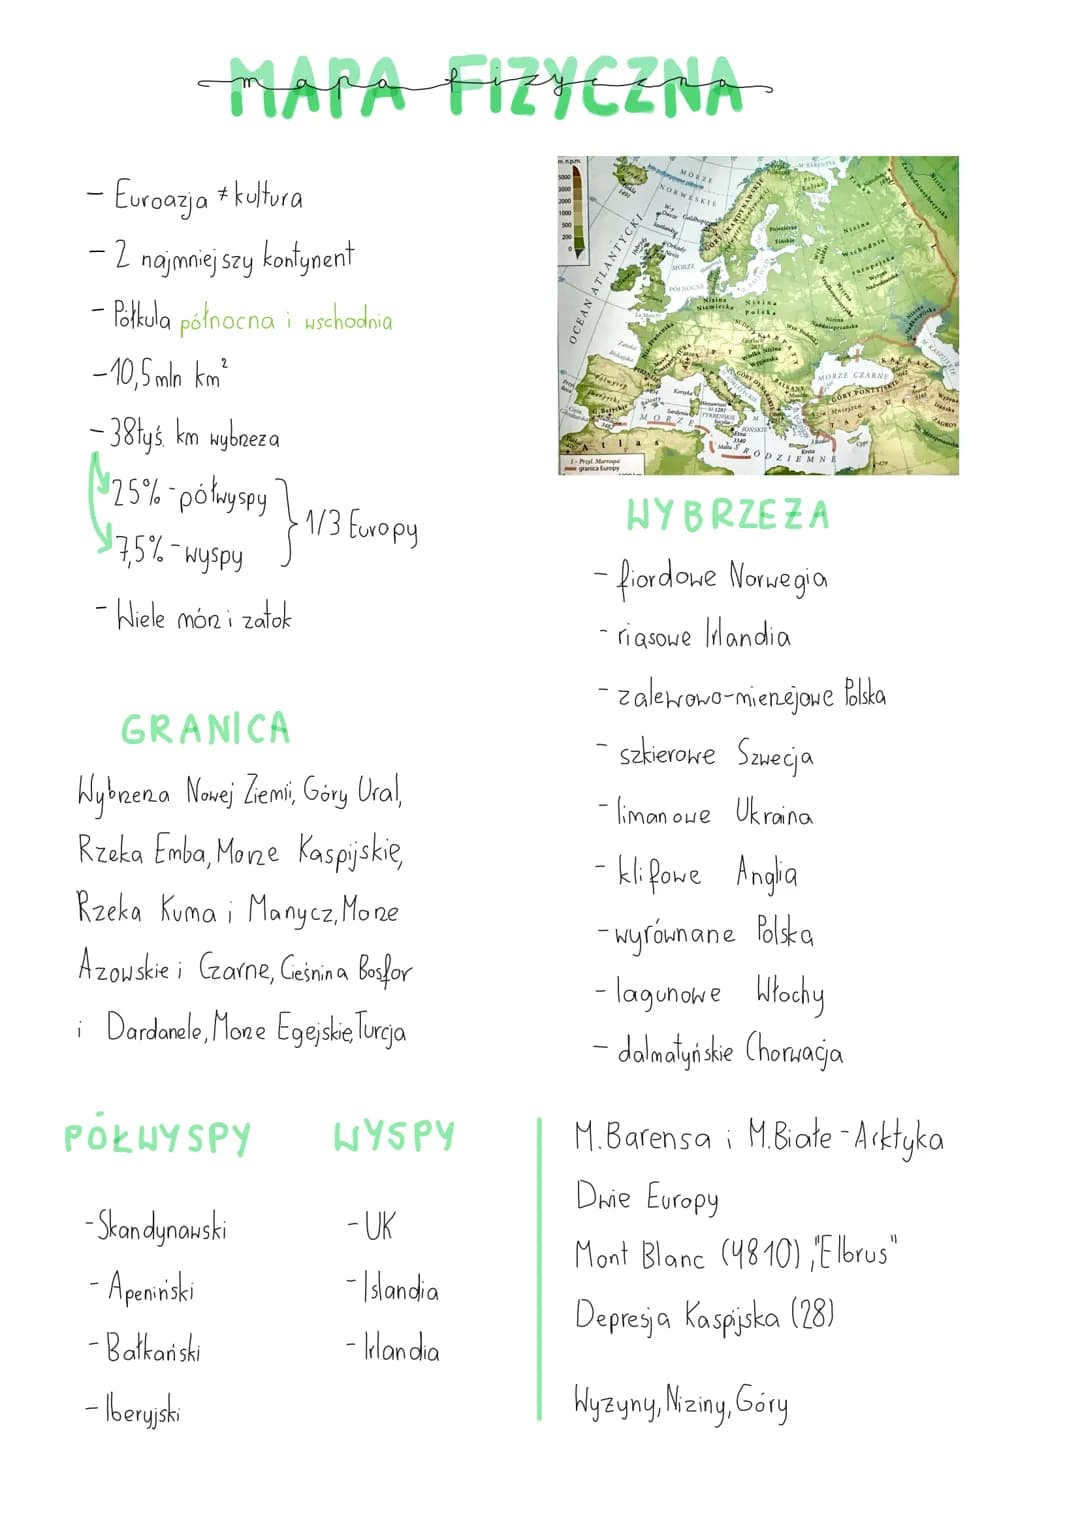 MAPA FIZYCZNA
mapa fizyczna
- Euroazja ≠ kultura
- 2 najmniejszy kontynent
- Półkula północna i wschodnia
- 10,5 mln km²
- 38 tyś. km wybrzeża
25% - półwyspy
7,5% - wyspy
} 1/3 Europy
- Wiele mórz i zatok
GRANICA
Wybrzeża Nowej Ziemii, Góry Ural,
Rzeka Emba, Morze Kaspijskie,
Rzeka Kuma i Manycz, Morze
Azowskie i Czarne, Cieśnina Bosfor
i Dardanele, Morze Egejskie, Turcja
PÓŁWYSPY
- Skandynawski
- Apeniński
- Bałkański
- Iberyjski
WYSPY
- UK
- Islandia
- Irlandia
m n.p.m.
5000
3000
2000
1000
500
200
0
MORZE
NORWESKIE
OCEAN ATLANTYCKI
GÓRY SKANDYNAWSKIE
MORZE
PÓŁNOCNE
Nizina
Niemiecka
Nizina
Polska
MORZE CZARNE
GÓRY PONTYJSKIE
MORZE
ŚRÓDZIEMNE
Atlas
granica Europy
WYBRZEŻA
- fiordowe Norwegia
- riasowe Irlandia
- zalewowo-mierzejowe Polska
- szkierowe Szwecja
- limanowe Ukraina
- klifowe Anglia
- wyrównane Polska
- lagunowe Włochy
- dalmatyńskie Chorwacja
M. Barensa i M. Białe - Arktyka
Dwie Europy
Mont Blanc (4810), "Elbrus"
Depresja Kaspijska (28)
Wyżyny, Niziny, Góry